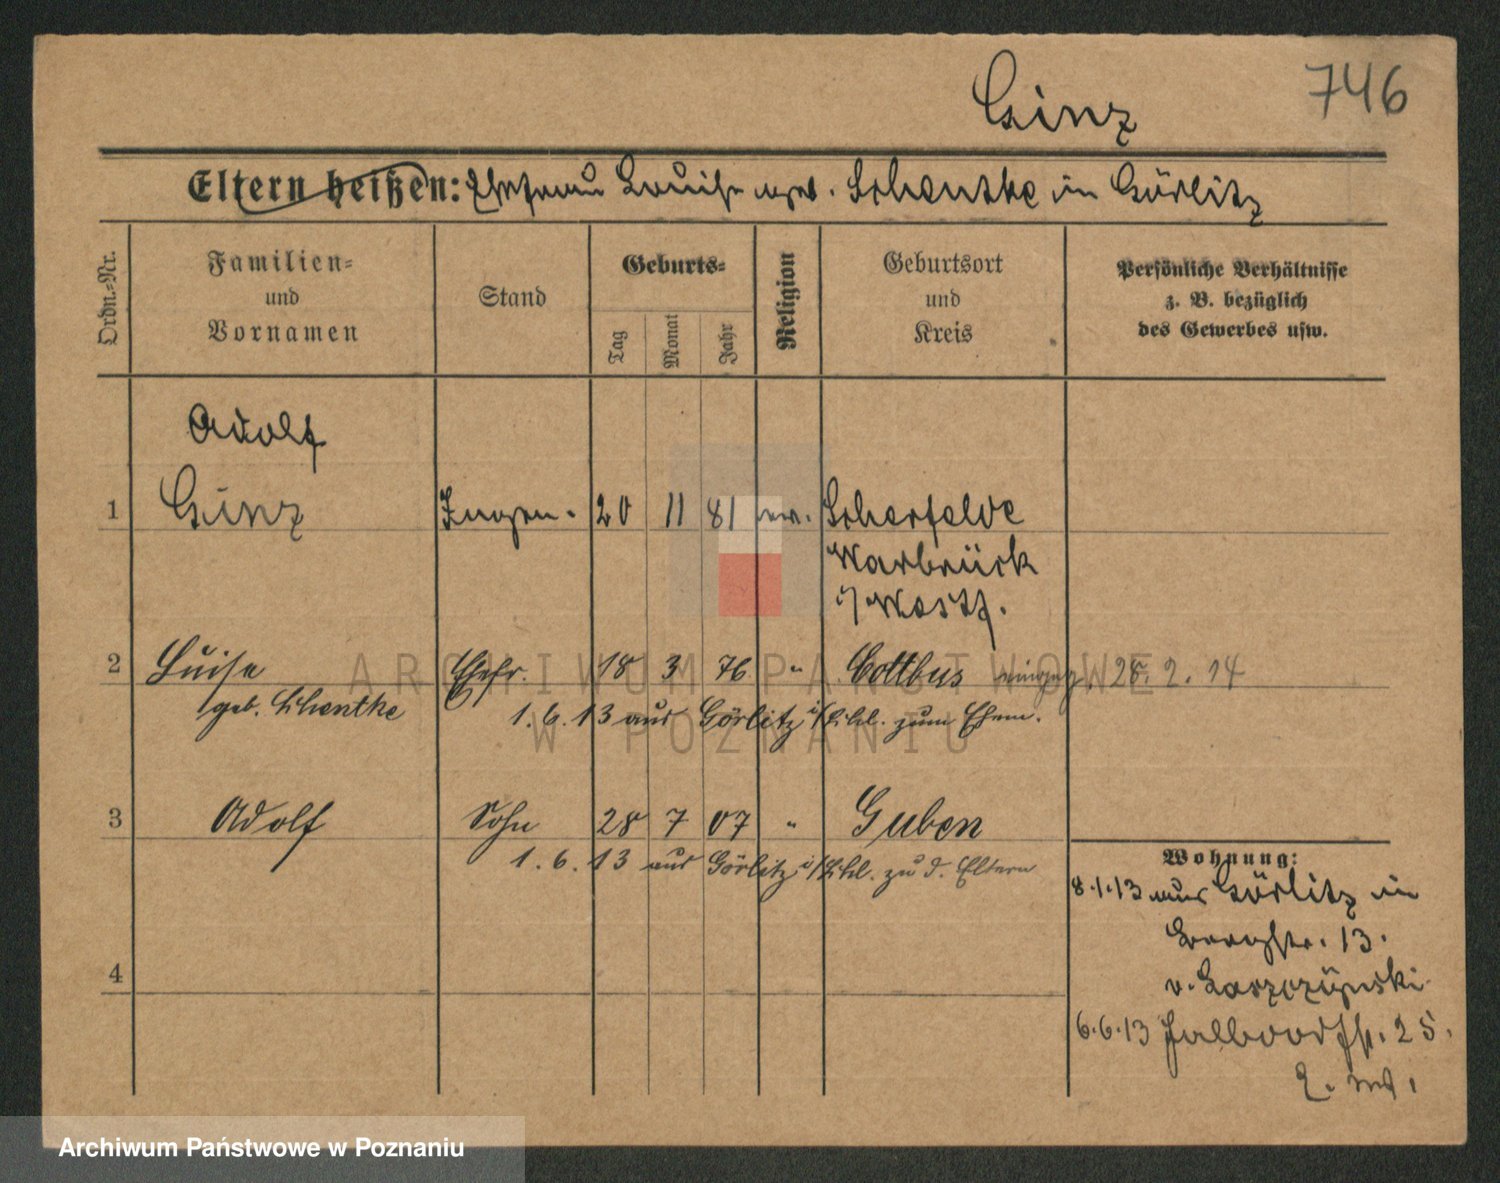 Ginz
746
Eltern heißen: Ehefrau Louise geb. Schentke in Görlitz
Ordn.-Nr.
Familien-
und
Vornamen
Stand
Geburts-
Tag
Monat
Jahr
Religion
Geburtsort
und
Kreis
Persönliche Verhältnisse
z. B. bezüglich
des Gewerbes usw.
Adolf
1 Ginz Ingen. 20 11 81 ev. Scherfelde
Warbrück
i/Westf.
2 Luise Ehefr. 18 3 76 " Cottbus 28. 2. 14
geb. Schentke 1. 6. 13 aus Görlitz i/Schl. zum Ehem.
3 Adolf Sohn 28 7 07 " Guben
1. 6. 13 aus Görlitz i/Schl. zu d. Eltern
4
Wohnung:
8.1.13 aus Görlitz in
13.
v.
6.6.13 25.
ARCHIWUM PAŃSTWOWE
W POZNANIU
Archiwum Państwowe w Poznaniu